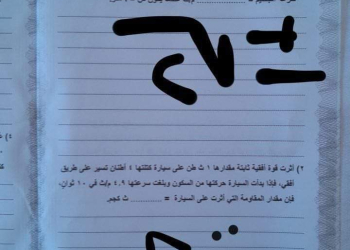 ٢) أثرت قوة أفقية ثابتة مقدارها ١ ث طن على سيارة كتلتها ٤ أطنان تسير على طريق
أفقي، فإذا بدأت السيارة حركتها من السكون وبلغت سرعتها ٤,٩ م/ث في ١٠ ثوانٍ،
فإن مقدار المقاومة التي أثرت على السيارة = ............ ث كجم.
٤)